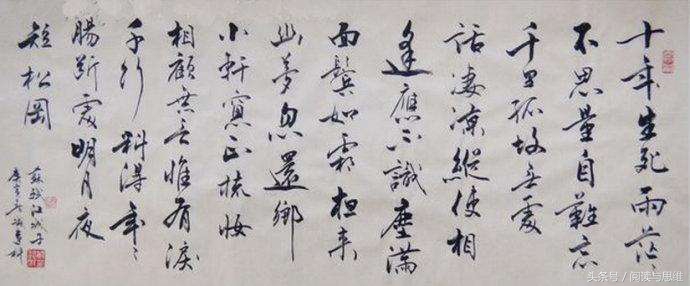 十年生死兩茫〻
不思量自難忘
千里孤墳無處
話凄涼縱使相
逢應不識塵滿
面鬢如霜夜来
幽夢忽還鄉
小軒窗正梳妝
相顧無言惟有淚
千行料得年〻
腸斷處明月夜
短松岡
蘇軾江城子
头条号 / 阅读与思维